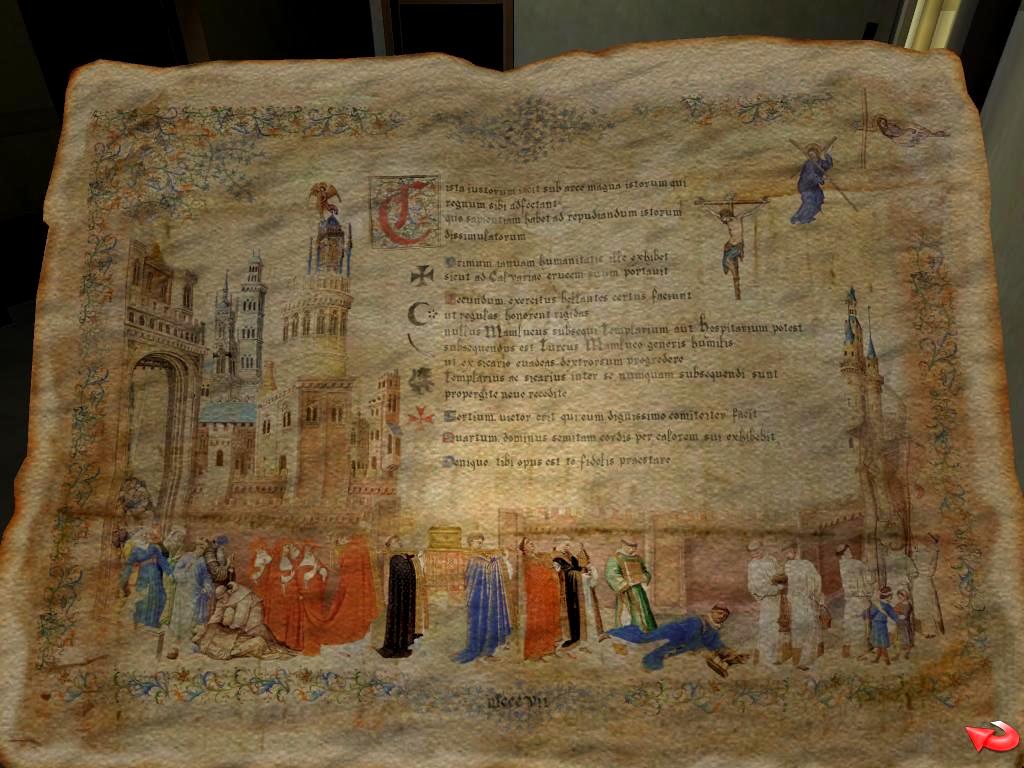 Cista iustorum iacit sub arce magna istorum qui
regnum sibi adfectant
quo sapientiam habet ad repudiandum istorum
dissimulatorum
Primum ianuam humanitatis ille exhibet
sicut ad Calvariae crucem suum portavit
Secundum exercitus bellantes certus faciunt
ut regulas honorent rigidas
nullus Mamlucus subsequi Templarium aut Hospitarium potest
subsequendus est Turcus Mamluco generis humilis
ut ex sicario evadeas dextrorsum progredere
Templarius ac sicarius inter se numquam subsequendi sunt
propergite neve recedite
Tertium victor erit qui eum dignissimo comiteiter facit
Quartum dominus semitam cordis per calorem sui exhibebit
Denique tibi opus est te fidelis praestare